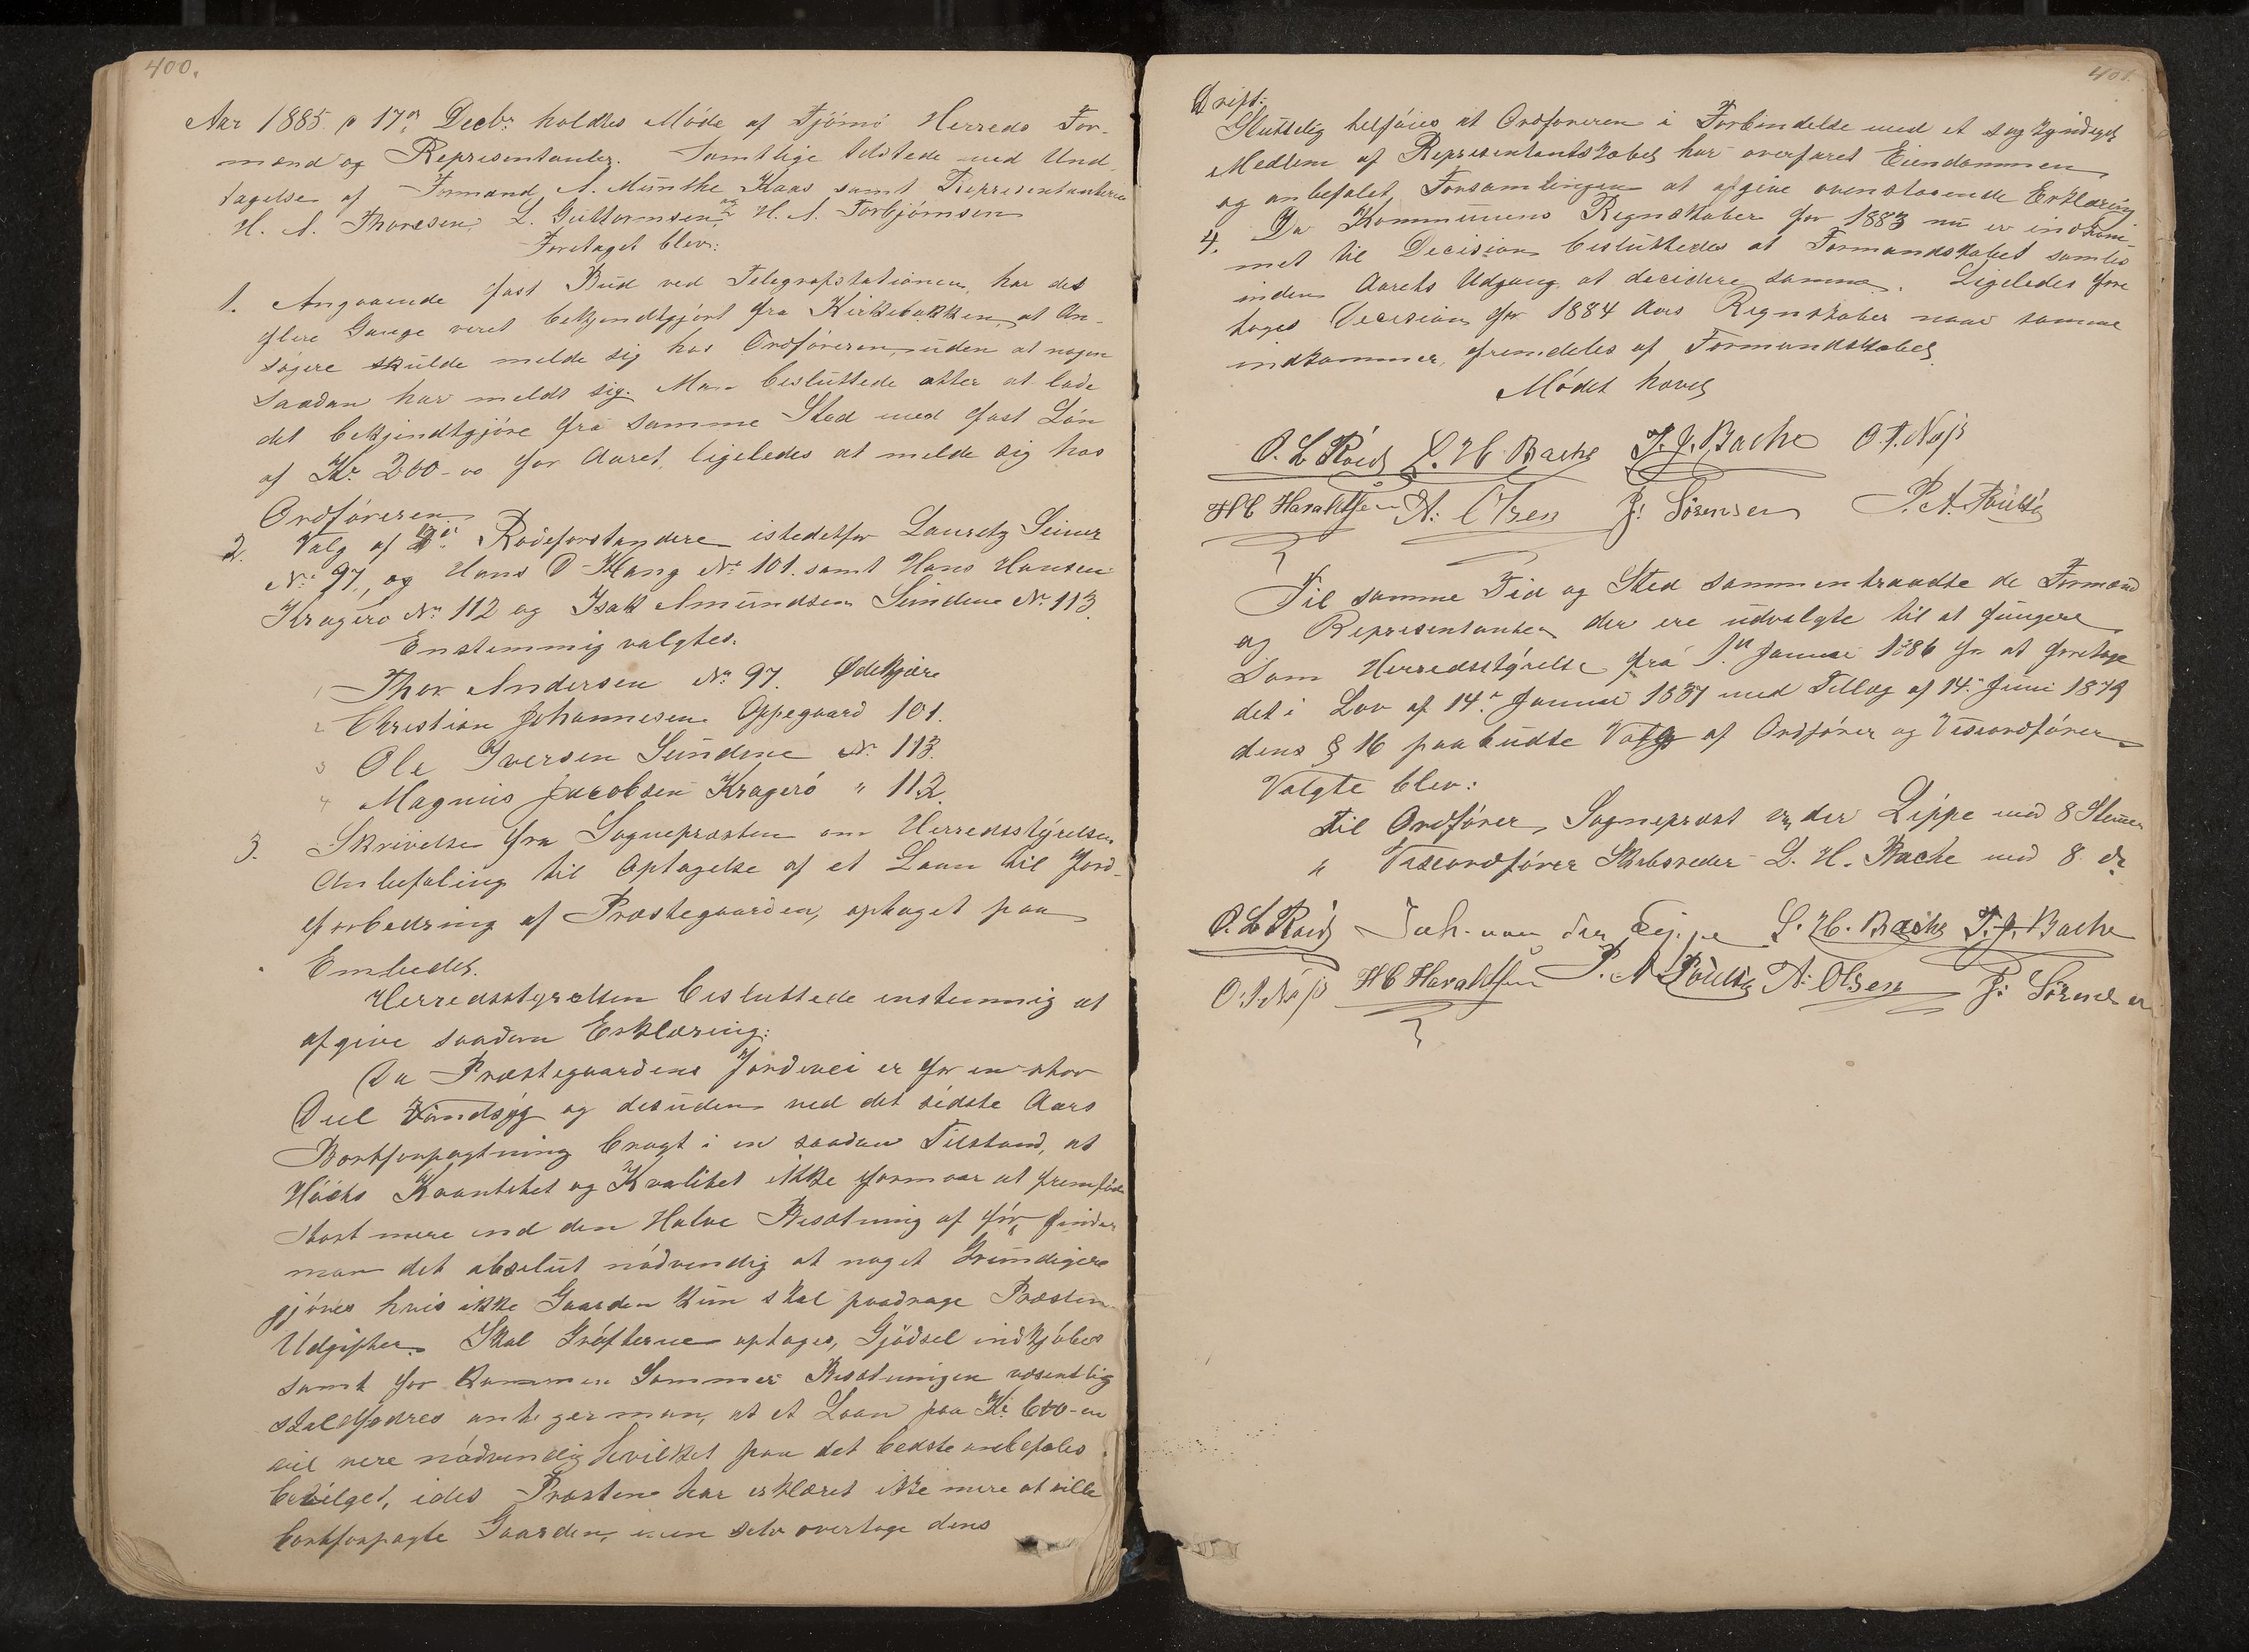 400.
Aar 1885 p 17de Decbr holdtes Möde af Tjömö Herreds For-
mænd og Repræsentanter. Samtlige tilstede med Und-
tagelse af Formand A. Munthe Kaas samt Repræsentanterne
H. A. Thoresen, L. Guttormsen og H. A. Torbjörnsen
Foretaget blev:
1. Angaaende fast Bud ved Telegrafstationen, har det
flere Gange været bekjendtgjört fra Kirkebakken, at An-
sögere skulde melde sig hos Ordföreren, uden at nogen
saadan har meldt sig. Man besluttede atter at lade
det bekjendtgjöre fra samme Sted med fast Lön
af Kr. 200-00 for Aaret, ligeledes at melde sig hos
Ordföreren
2. Valg af Rodeforstandere istedetfor Lauretz
No 97, og Hans Hang No 101. samt Hans Hansen
Kragerö No 112 og Isak Amundsen Sundene No 113.
Enstemmig valgtes.
1 Thor Andersen No 97. Ødekjære
2 Christian Johannesen Oppegaard 101.
3 Ole Iversen Sundene No 113.
4 Magnus Jacobsen Kragerö " 112.
3. Skrivelse fra Sognepræsten om Herredsstyrelsens
Anbefaling til Optagelse af et Laan til Jord-
forbedring af Præstegaarden, optaget paa
Embedet.
Herredsstyrelsen besluttede enstemmig at
afgive saadan Erklæring:
Da Præstegaardens Jordvei er for en stor
Deel Vandsyg og desuden ved det sidste Aars
Bortforpagtning bragt i en saadan Tilstand, at
Höets Kvantitet og Kvalitet ikke formaar at fremföde
stort mere end den Halve Besætning af för, finder
man det absolut nödvendig at noget Grundigere
gjöres hvis ikke Gaarden kun skal paadrage Præsten
Udgifter. Skal Gröfterne optages, Gjödsel indkjöbes
samt for Sommer Besætningen væsentlig
staldfodres antager man, at et Laan paa Kr. 600-
vil være nödvendig hvilket paa det bedste anbefales
bevilget, idet Præsten har erklæret ikke mere at ville
bortforpagte Gaarden, men selv overtage dens
401.
Drift.
Sluttelig tilföies at Ordföreren i Forbindelse med et sagkyndigt
Medlem af Repræsentantskabet har overfaret Eiendommen
og anbefalet Forsamlingen at afgive ovenstaaende Erklæring
4. Da Kommunens Regnskaber for 1883 nu er indkom-
met til Decision besluttedes at Formandskabet samles
inden Aarets Udgang at decidere samme. Ligeledes fore
tages Decision for 1884 Aars Regnskaber naar samme
indkommer, fremdeles af Formandskabet.
Mödet hævet
O. L. Röed L. H. Bache T. J. Bache O. T. Nöss
H C Haraldsen A: Olsen J: Sörensen P. A. Poulsen
Til samme Tid og Sted sammentraadte de Formænd
og Repræsentanter der ere udvalgte til at fungere
som Herredsstyrelse fra 1st Januar 1886 for at foretage
det i Lov af 14. Januar 1837 med Tillæg af 14. Juni 1879
dens § 16 paabudte Valg af Ordförer og Viseordförer
Valgte blev:
Til Ordförer, Sogneprest v. der Lippe med 8 Stemmer
" Viseordförer Skibsreder L. H. Bache med 8 do
O. L. Röed Jah. van der Lippe L. H. Bache T. J. Bache
O. T. Nöss H C Haraldsen P. A Poulsen A: Olsen J: Sörensen